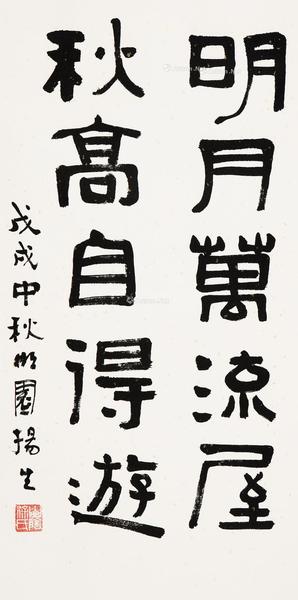 明月萬流屋
秋高自得遊
戊戌中秋園揚生